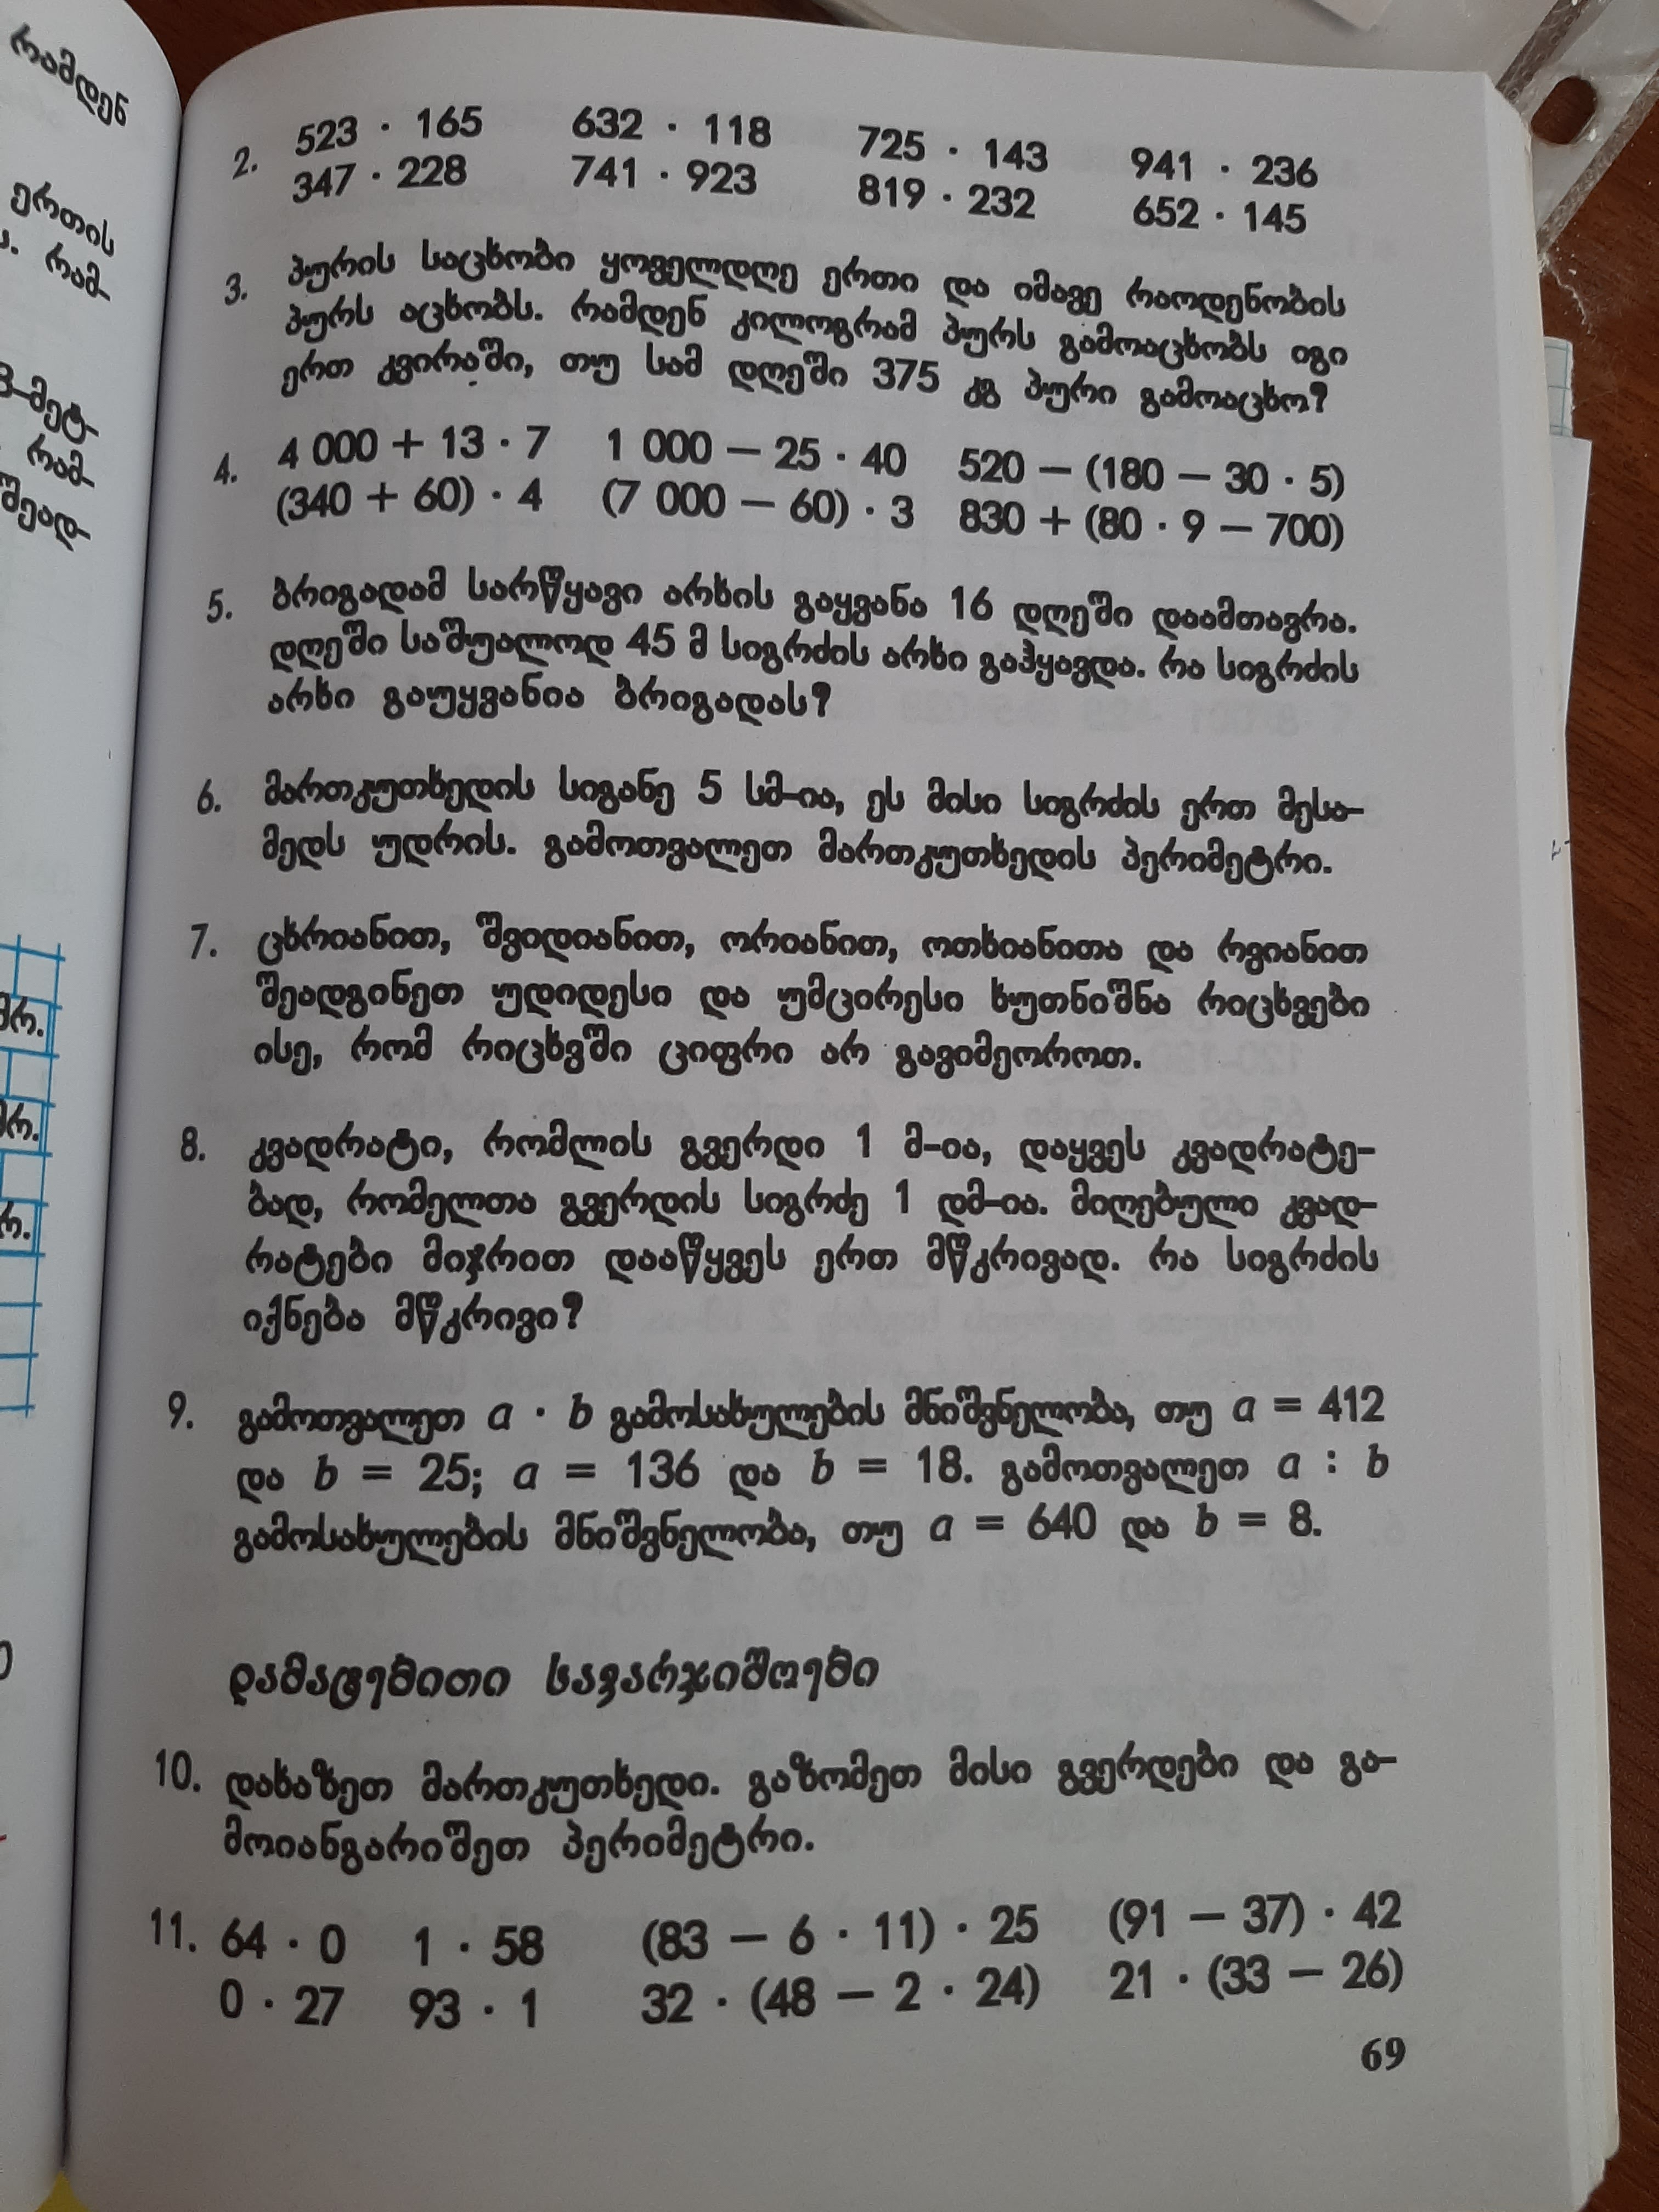 რამდენ
ერთის
რამ-
3-მეტ-
რამ-
შეად-
2. 523 · 165 632 · 118 725 · 143 941 · 236
347 · 228 741 · 923 819 · 232 652 · 145
3. პურის საცხობი ყოველდღე ერთი და იმავე რაოდენობის
პურს აცხობს. რამდენ კილოგრამ პურს გამოაცხობს იგი
ერთ კვირაში, თუ სამ დღეში 375 კგ პური გამოაცხო?
4. 4 000 + 13 · 7 1 000 — 25 · 40 520 — (180 — 30 · 5)
(340 + 60) · 4 (7 000 — 60) · 3 830 + (80 · 9 — 700)
5. ბრიგადამ სარწყავი არხის გაყვანა 16 დღეში დაამთავრა.
დღეში საშუალოდ 45 მ სიგრძის არხი გაჰყავდა. რა სიგრძის
არხი გაუყვანია ბრიგადას?
6. მართკუთხედის სიგანე 5 სმ-ია, ეს მისი სიგრძის ერთ მესა-
მედს უდრის. გამოთვალეთ მართკუთხედის პერიმეტრი.
7. ცხრიანით, შვიდიანით, ორიანით, ოთხიანითა და რვიანით
შეადგინეთ უდიდესი და უმცირესი ხუთნიშნა რიცხვები
ისე, რომ რიცხვში ციფრი არ გავიმეოროთ.
8. კვადრატი, რომლის გვერდი 1 მ-ია, დაყვეს კვადრატე-
ბად, რომელთა გვერდის სიგრძე 1 დმ-ია. მიღებული კვად-
რატები მიჯრით დააწყვეს ერთ მწკრივად. რა სიგრძის
იქნება მწკრივი?
9. გამოთვალეთ a · b გამოსახულების მნიშვნელობა, თუ a = 412
და b = 25; a = 136 და b = 18. გამოთვალეთ a : b
გამოსახულების მნიშვნელობა, თუ a = 640 და b = 8.
დამატებითი სავარჯიშოები
10. დახაზეთ მართკუთხედი. გაზომეთ მისი გვერდები და გა-
მოიანგარიშეთ პერიმეტრი.
11. 64 · 0 1 · 58 (83 — 6 · 11) · 25 (91 — 37) · 42
0 · 27 93 · 1 32 · (48 — 2 · 24) 21 · (33 — 26)
69